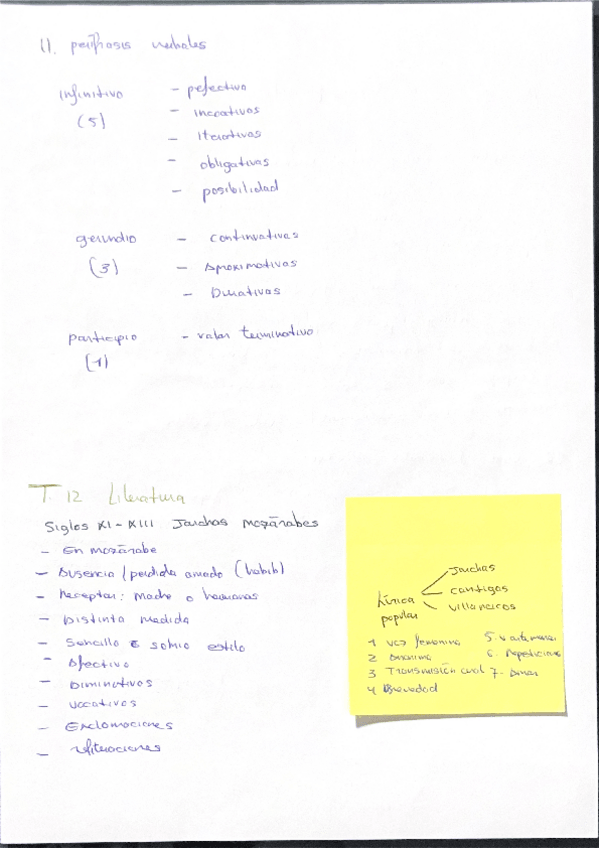 11. perífrasis verbales
infinitivo - perfectivo
(5) - incoativos
- Iterativas
- obligativas
- posibilidad
gerundio - continuativas
(3) - Aproximativas
- Durativas
participio - valor terminativo
(1)
T. 12 Literatura
Siglos XI - XIII Jarchas mozárabes
- En mozárabe
- Ausencia / perdida amado (habib)
- Receptor: madre o hermanas
- Distinta medida
- Sencillo e sobrio estilo
- Afectivo
- Diminutivos
- Vocativos
- Exclamaciones
- Reiteraciones
Lírica popular
Jarchas
cantigas
villancicos
1 voz femenina
2 Anónima
3 Transmisión oral
4 Brevedad
5.
6. Repeticiones
7- Amor